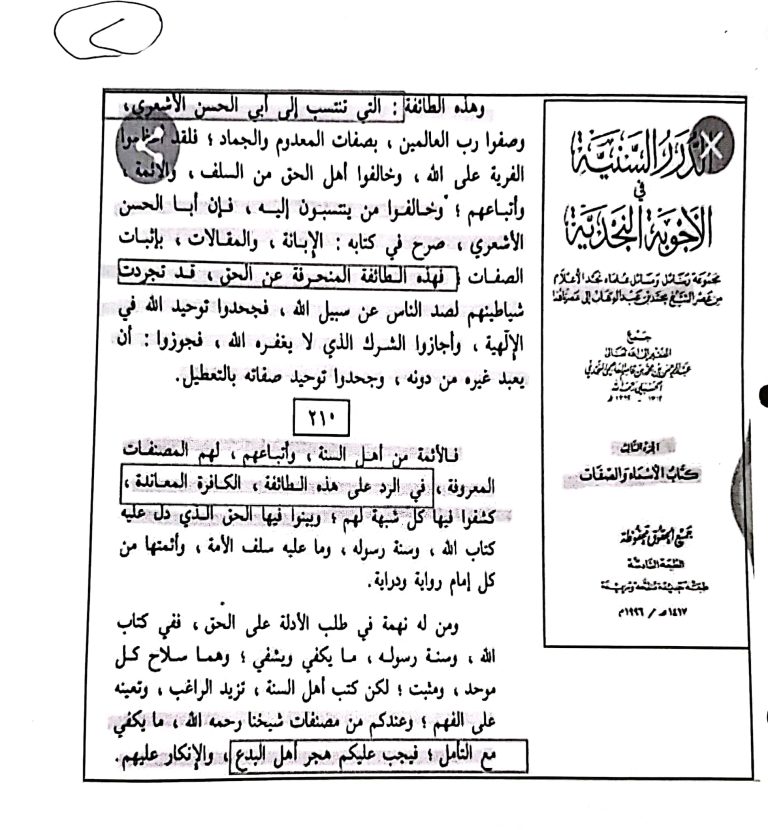 وهذه الطائفة : التي تنتسب إلى أبي الحسن الأشعري ،
وصفوا رب العالمين ، بصفات المعدوم والجماد ؛ فلقد أعظموا
الفرية على الله ، وخالفوا أهل الحق من السلف ، والأئمة ،
وأتباعهم ؛ وخالفوا من ينتسبون إليه ، فإن أبا الحسن
الأشعري ، صرح في كتابه : الإبانة ، والمقالات ، بإثبات
الصفات ؛ فهذه الطائفة المنحرفة عن الحق ، قد تجردت
شياطينهم لصد الناس عن سبيل الله ، فجحدوا توحيد الله في
الإلٰهية ، وأجازوا الشرك الذي لا يغفره الله ، فجوزوا : أن
يعبد غيره من دونه ، وجحدوا توحيد صفاته بالتعطيل.
٢١٠
فالأئمة من أهل السنة ، وأتباعهم ، لهم المصنفات
المعروفة ، في الرد على هذه الطائفة ، الكافرة المعاندة ،
كشفوا فيها كل شبهة لهم ؛ وبينوا فيها الحق الذي دل عليه
كتاب الله ، وسنة رسوله ، وما عليه سلف الأمة ، وأئمتها من
كل إمام رواية ودراية.
ومن له نهمة في طلب الأدلة على الحق ، ففي كتاب
الله ، وسنة رسوله ، ما يكفي ويشفي ؛ وهما سلاح كل
موحد ، ومثبت ؛ لكن كتب أهل السنة ، تزيد الراغب ، وتعينه
على الفهم ؛ وعندكم من مصنفات شيخنا رحمه الله ، ما يكفي
مع التأمل ؛ فيجب عليكم هجر أهل البدع ، والإنكار عليهم.
الدرر السنية
في
الأجوبة النجدية
مجموعة رسائل ومسائل علماء نجد الأعلام
من عصر الشيخ محمد بن عبد الوهاب إلى عصرنا هذا
جمع
الفقير إلى الله تعالى
عبد الرحمن بن محمد بن قاسم
الجزء الثالث
كتاب الأسماء والصفات
جميع الحقوق محفوظة
الطبعة السادسة
طبعة جديدة منقحة ومزيدة
١٤١٧هـ / ١٩٩٦م